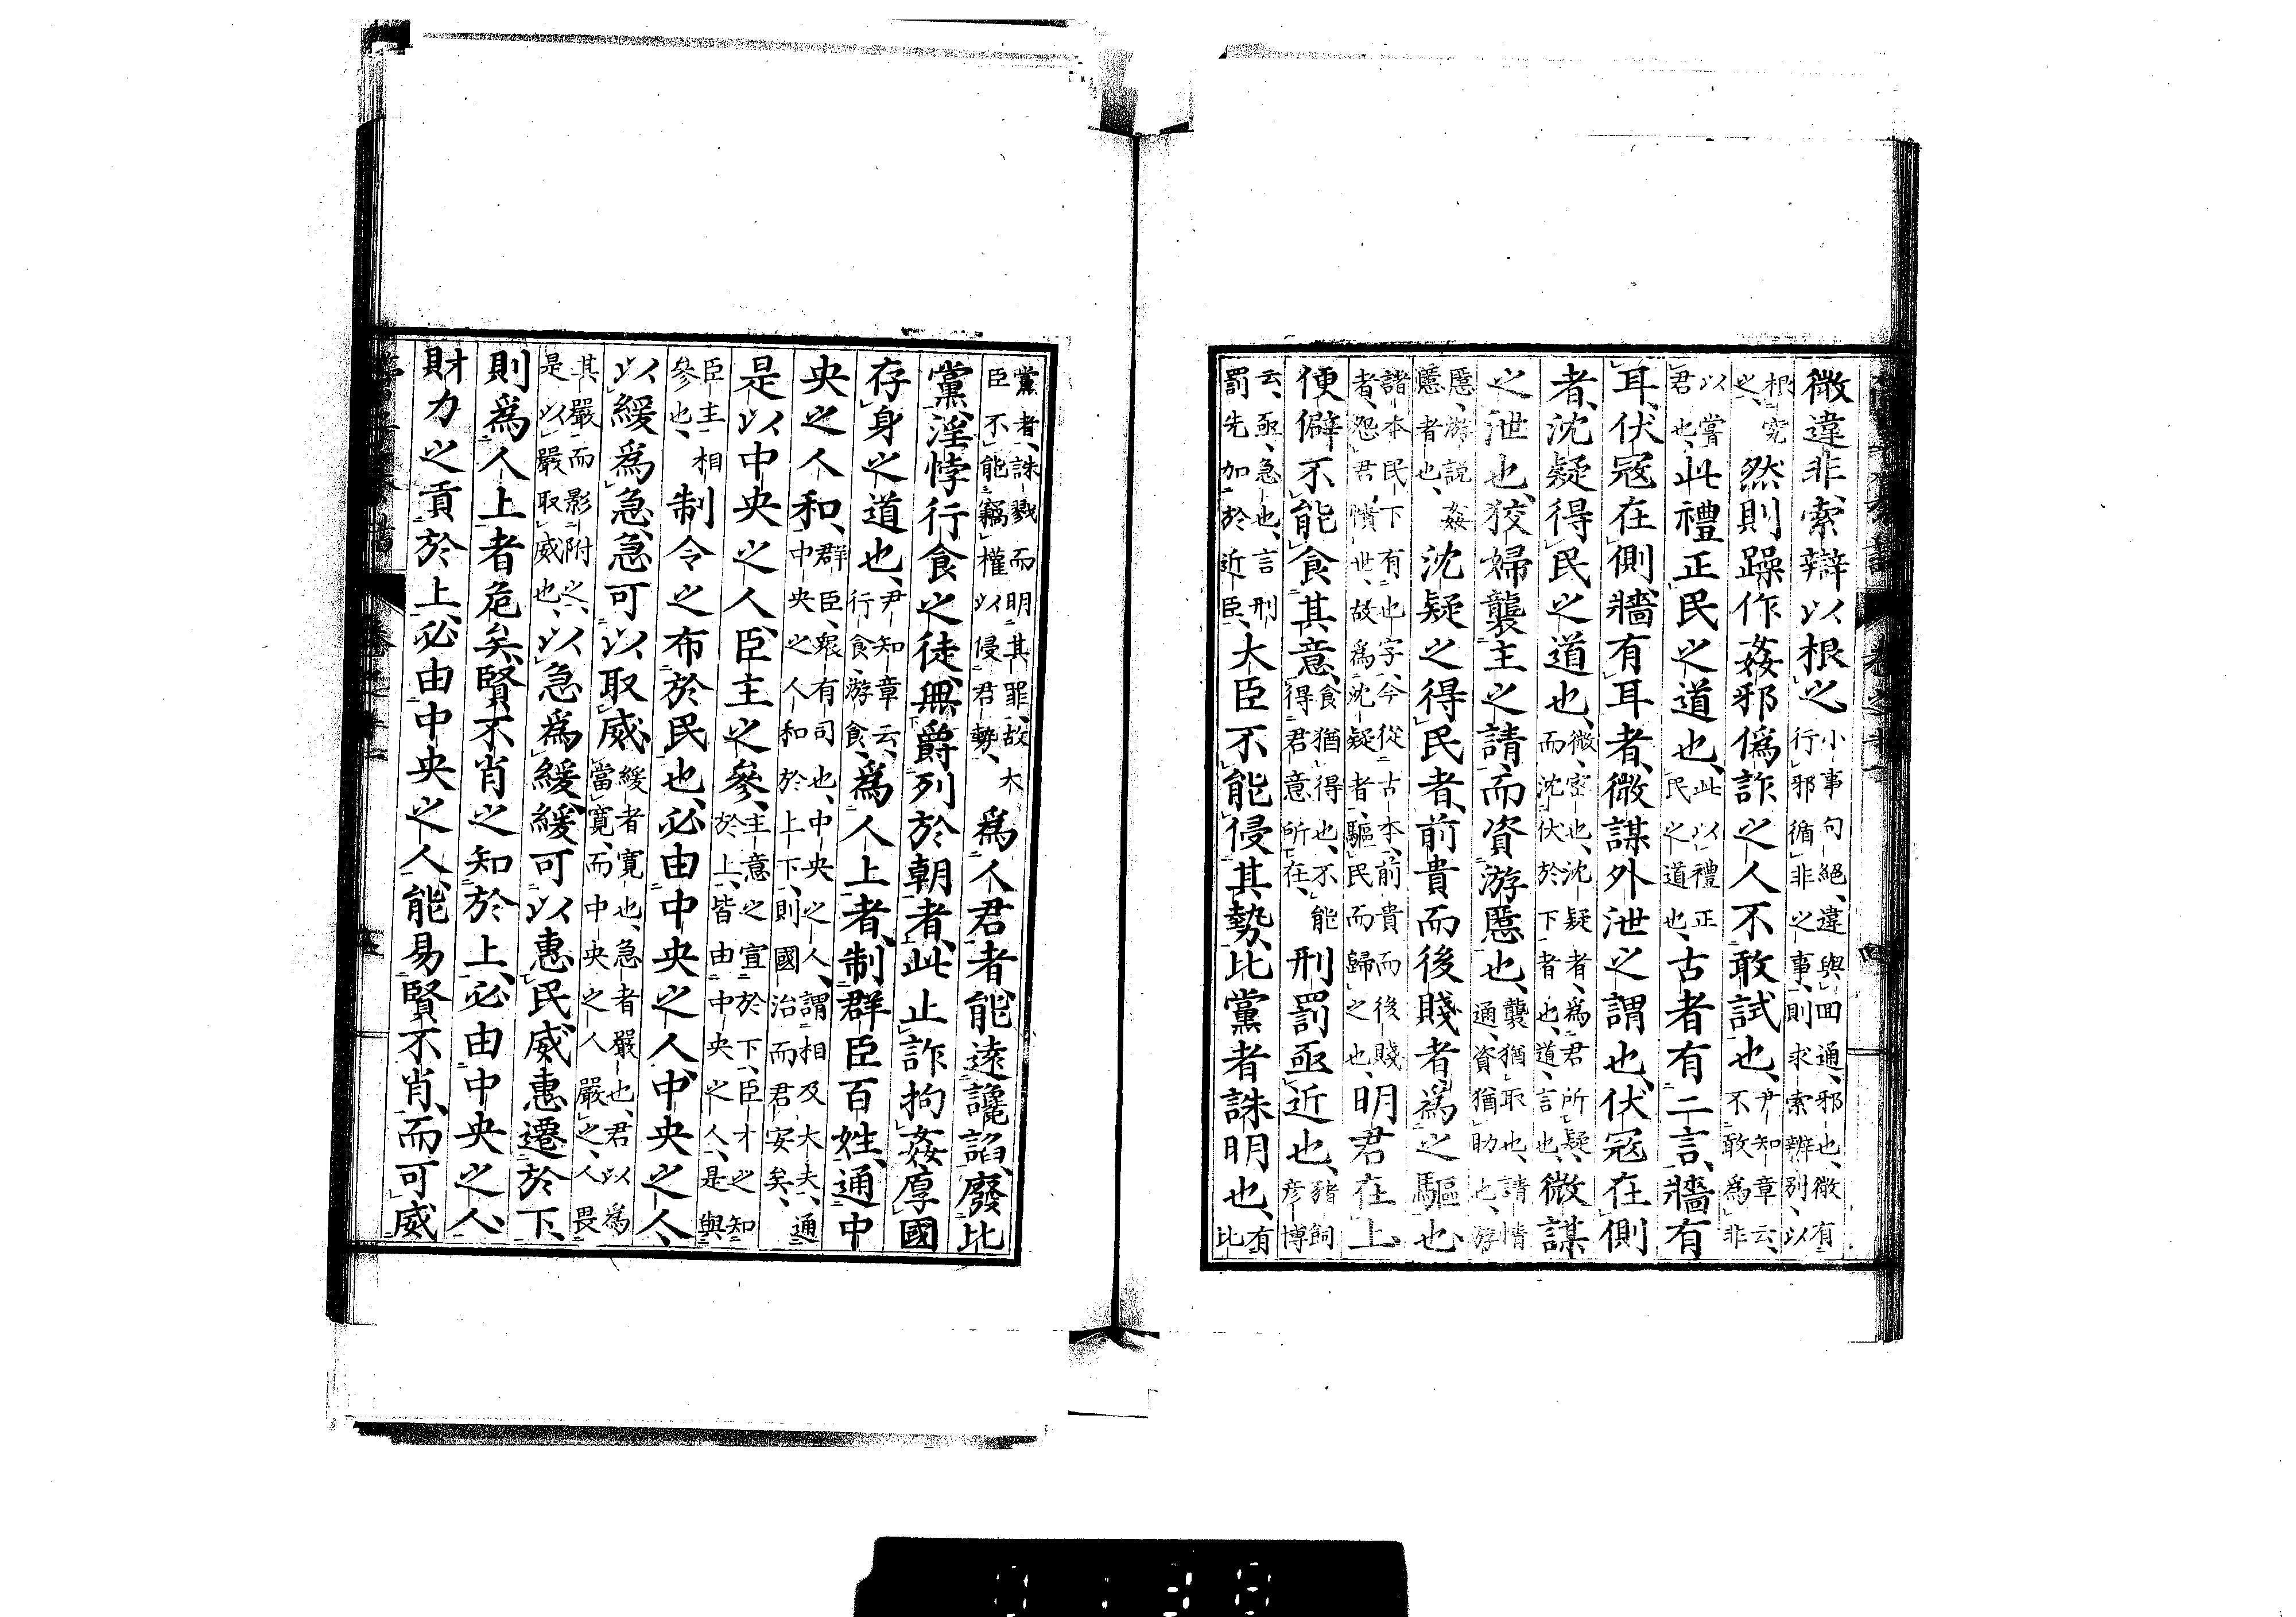 微違非、索辯以根之、小事句絕、違與回通、邪也、微有行邪循非之事、則求索辨別、以
根究之、然則躁作姦邪偽詐之人不敢試也、尹知章云、不敢爲非
以嘗君也、此禮正民之道也、此以禮正民之道也、古者有二言、牆有
耳、伏寇在側、牆有耳者、微謀外泄之謂也、伏寇在側
者、沈疑得民之道也、微、密也、沈疑者、爲君所疑、而沈伏於下者也、道、言也、微謀
之泄也、狡婦襲主之請、而資游慝也、襲猶取也、請情通、資猶助也、游
慝、游說姦慝者也、沈疑之得民者、前貴而後賤者爲之驅也、
諸本民下有也字、今從古本、前貴而後賤者、怨君憤世、故爲沈疑者、驅民而歸之也、明君在上、
便僻不能食其意、食猶得也、不能得君意所在、刑罰亟近也、豬飼彥博
云、亟、急也、言刑罰先加於近臣、大臣不能侵其勢、比黨者誅明也、有比
黨者、誅戮而明其罪、故大臣不能竊權以侵君勢、爲人君者、能遠讒諂、廢比
黨淫悖行食之徒、無爵列於朝者、此止詐拘姦厚國
存身之道也、尹知章云、行食、游食、爲人上者、制群臣百姓、通中
央之人和、群臣、衆有司也、中央之人、謂相及大夫、通中央之人和於上下、則國治而君安矣、
是以中央之人、臣主之參、主意之宣於下、臣才之知於上、皆由中央之人、是與
臣主相參也、制令之布於民也、必由中央之人、中央之人、
以緩爲急、急可以取威、緩者寬也、急者嚴也、君以爲當寬、而中央之人嚴之、人畏
其嚴而影附之、是以嚴取威也、以急爲緩、緩可以惠民、威惠遷於下、
則爲人上者危矣、賢不肖之知於上、必由中央之人、
財力之貢於上、必由中央之人、能易賢不肖、而可威